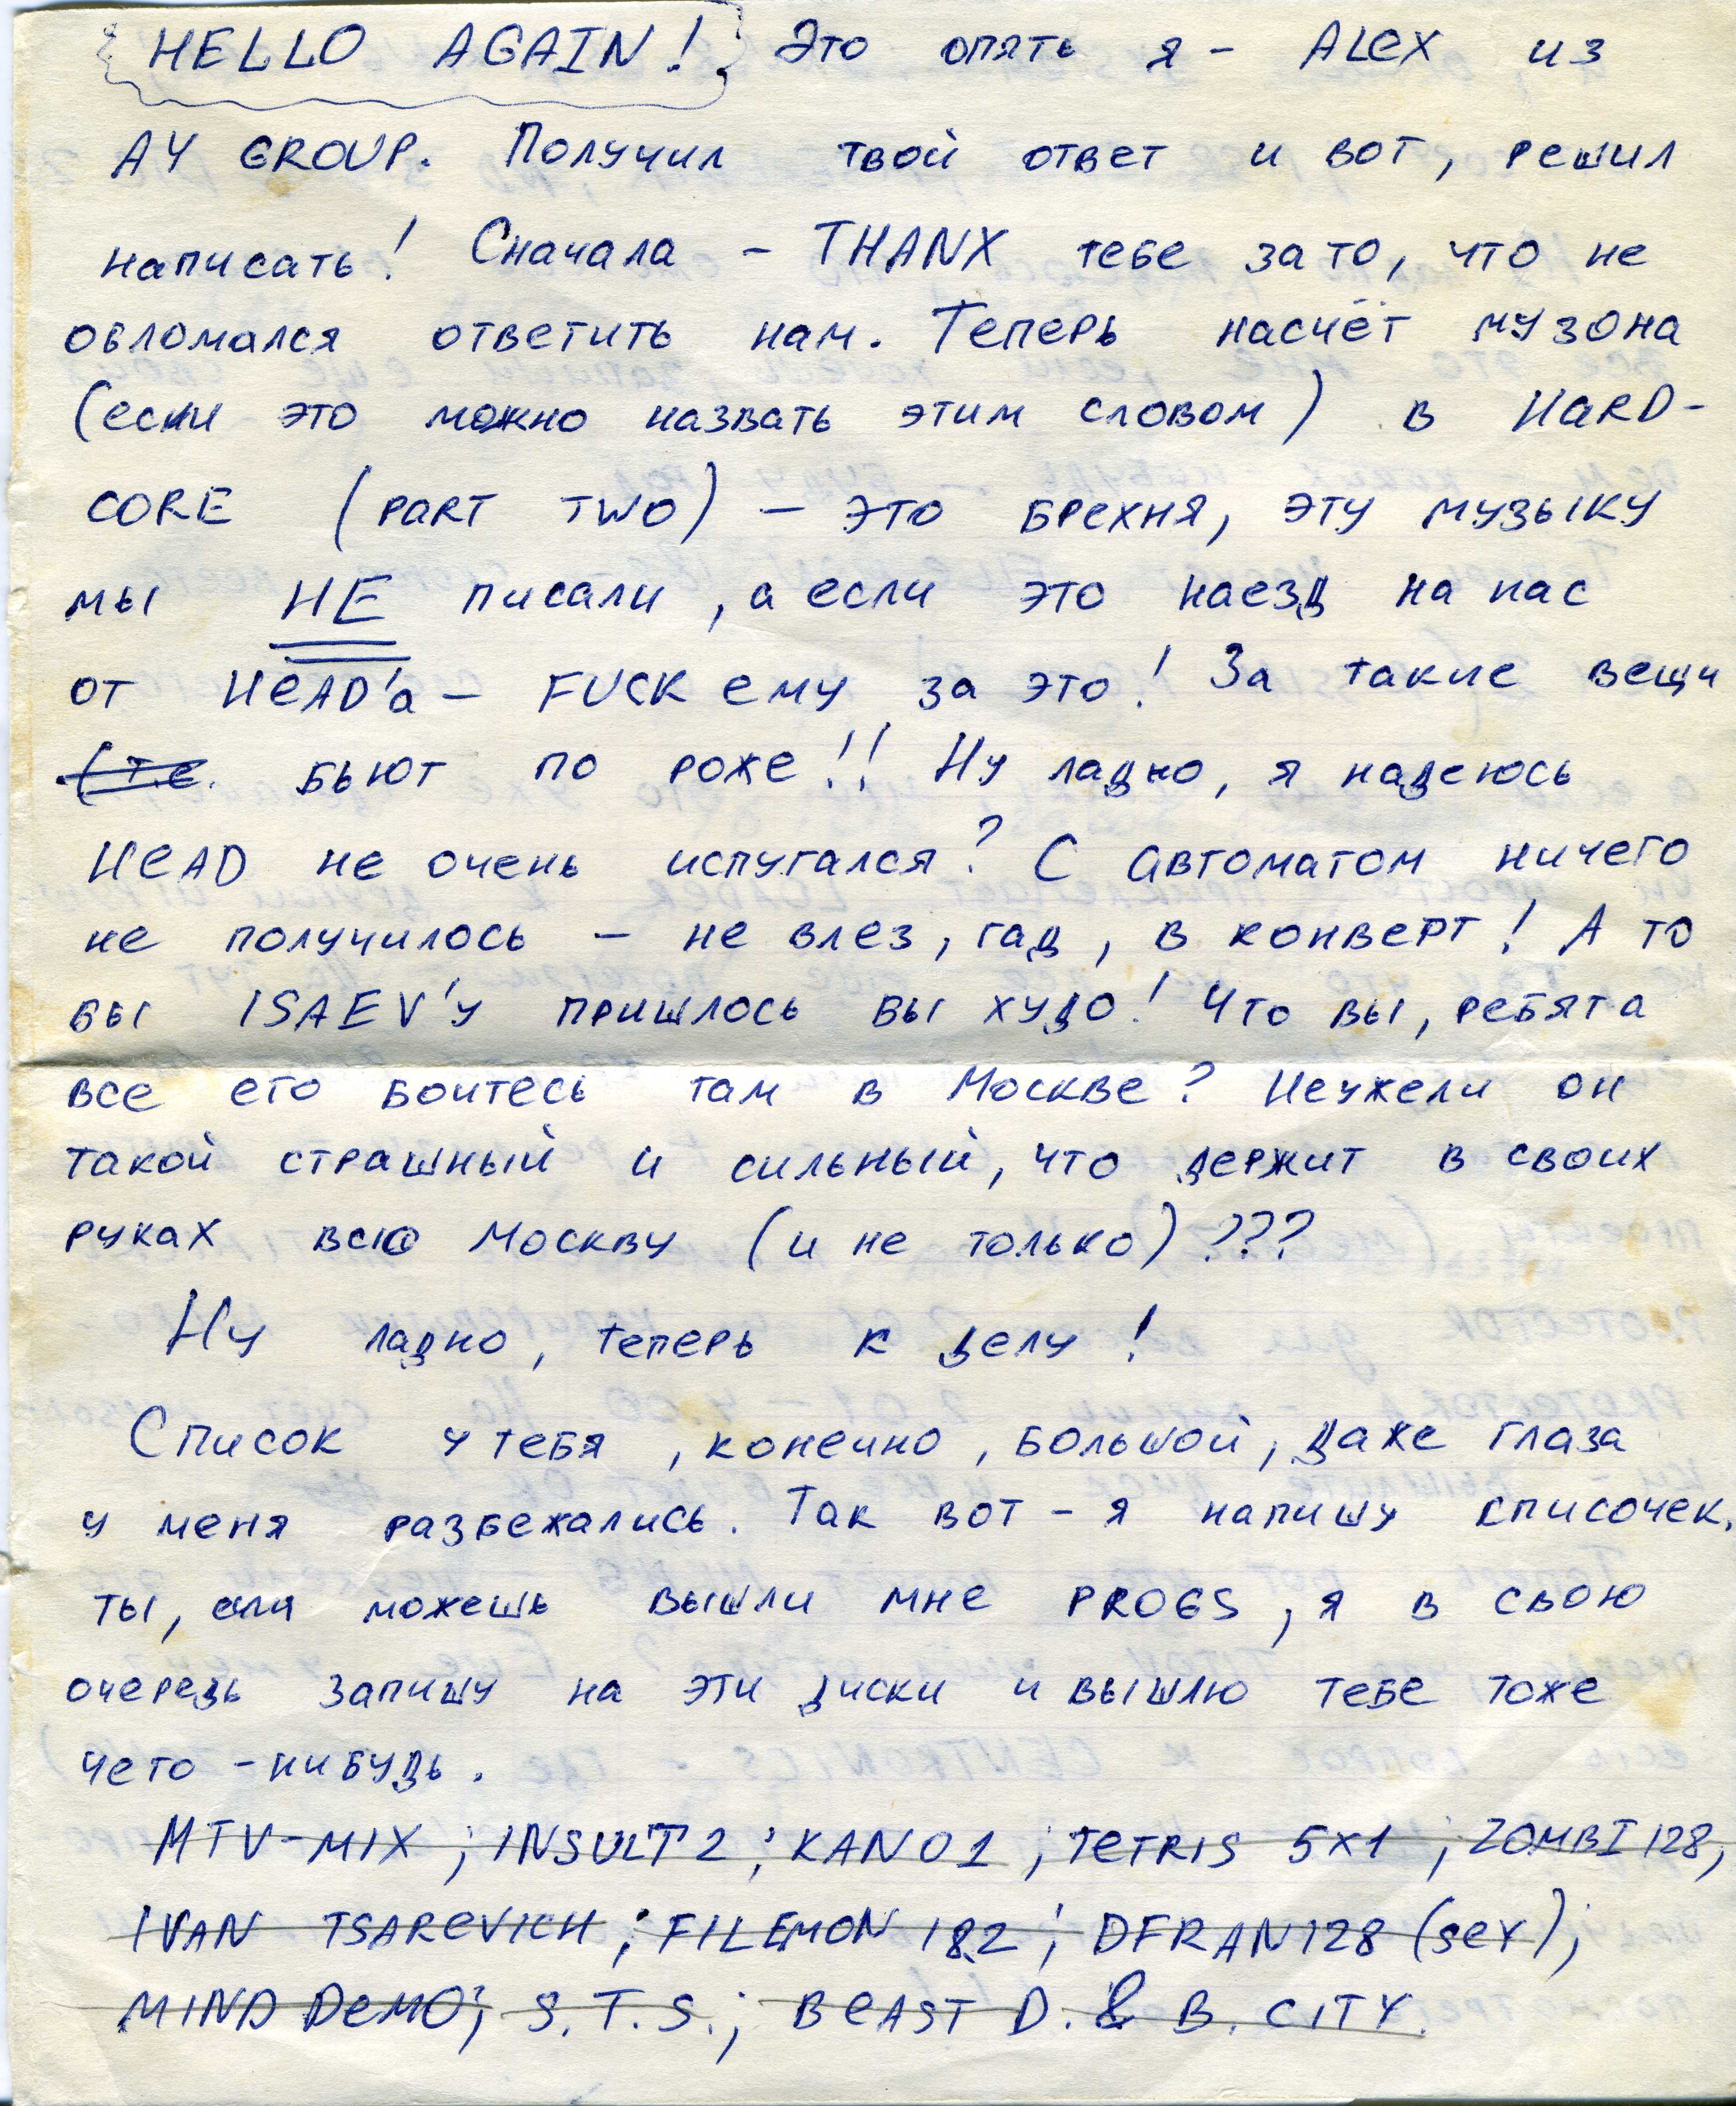 HELLO AGAIN! Это опять я - ALEX из
AY GROUP. Получил твой ответ и вот, решил
написать! Сначала - THANX тебе за то, что не
обломался ответить нам. Теперь насчёт музона
(если это можно назвать этим словом) в HARD-
CORE (PART TWO) - это брехня, эту музыку
мы НЕ писали, а если это наезд на нас
от HEAD'а - FUCK ему за это! За такие вещи
(т.е. бьют по роже!! Ну ладно, я надеюсь
HEAD не очень испугался? С автоматом ничего
не получилось - не влез, гад, в конверт! А то
бы ISAEV'у пришлось бы худо! Что вы, ребята
все его боитесь там в Москве? Неужели он
такой страшный и сильный, что держит в своих
руках всю Москву (и не только)???
Ну ладно, теперь к делу!
Список у тебя, конечно, большой, даже глаза
у меня разбежались. Так вот - я напишу списочек,
ты, если можешь вышли мне PROGS, я в свою
очередь запишу на эти диски и вышлю тебе тоже
чего-нибудь.
MTV-MIX; INSULT 2; KANO 1; TETRIS 5X1; ZOMBI 128,
IVAN TSAREVICH; FILEMON 1&2; DFRAN128 (sex);
MIND DEMO; S.T.S.; BEAST D. & B. CITY.